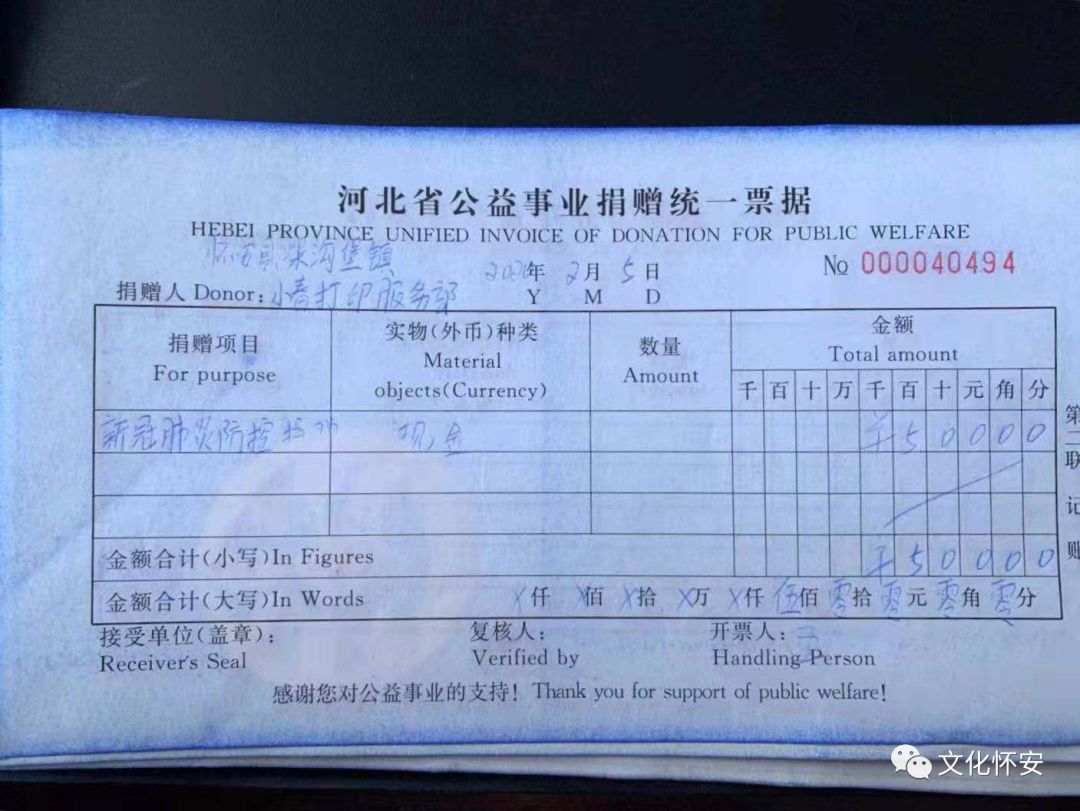 河北省公益事业捐赠统一票据
HEBEI PROVINCE UNIFIED INVOICE OF DONATION FOR PUBLIC WELFARE
怀安县柴沟堡镇
捐赠人 Donor: 小春打印服务部
2020年 2月 5日
Y M D
№ 000040494
捐赠项目
For purpose
实物(外币)种类
Material
objects(Currency)
数量
Amount
金额
Total amount
千 百 十 万 千 百 十 元 角 分
新冠肺炎防控 现金 ¥ 5 0 0 0 0
金额合计(小写)In Figures ¥ 5 0 0 0 0
金额合计(大写)In Words X仟 X佰 X拾 X万 X仟 伍佰 零拾 零元 零角 零分
第二联 记账
接受单位(盖章): 复核人: 开票人:
Receiver's Seal Verified by Handling Person
感谢您对公益事业的支持! Thank you for support of public welfare!
文化怀安